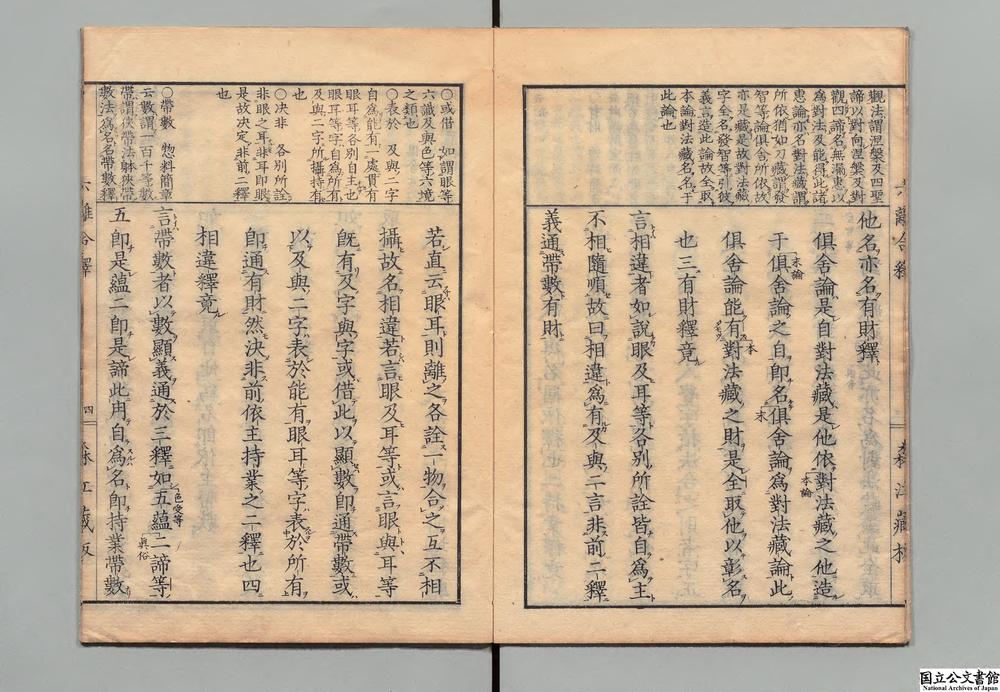 觀法謂涅槃及四聖
諦以對向涅槃及對
觀四諦名無漏惠以
為對法及能得此諸
惠論亦名對法藏謂
所依猶如刀藏謂發
智等論俱舍所依故
亦是藏是故對法藏
字全名發智等引彼
義言造此論故全取
本論對法藏名名于
此論也
他名亦名有財釋
俱舍論是自對法藏是他依對法藏之他造
本論
于俱舍論之自即名俱舍論為對法藏論此
末論
末
俱舍論能有對法藏之財是全取他以彰名
本
也三有財釋竟
言相違者如說眼及耳等各別所詮皆自為主
不相隨順故曰相違為有及與二言非前二釋
義通帶數有財
六離合釋
〇或借 如謂眼等
六識及與色等六境
之類也
〇表於 及與二字
自為能有一處貫有
眼耳等各別自主也
眼耳等字自為所有
及與二字所攝持有
也
〇決非 各別所詮
非眼之耳非耳即眼
是故決定非前二釋
也
〇帶數 惣料簡章
云數謂一百千等數
帶謂俠帶法躰俠帶
數法為名名帶數釋
若直云眼耳則離之各詮一物合之互不相
攝故名相違若言眼及耳等或言眼與耳等
既有及字與字或借此以顯數即通帶數或
以及與二字表於能有眼耳等字表於所有
即通有財然決非前依主持業之二釋也四
相違釋竟
言帶數者以數顯義通於三釋如五蘊二諦等
色受等
眞俗
五即是蘊二即是諦此用自為名即持業帶數
六離合釋
四
国立公文書館
National Archives of Japan